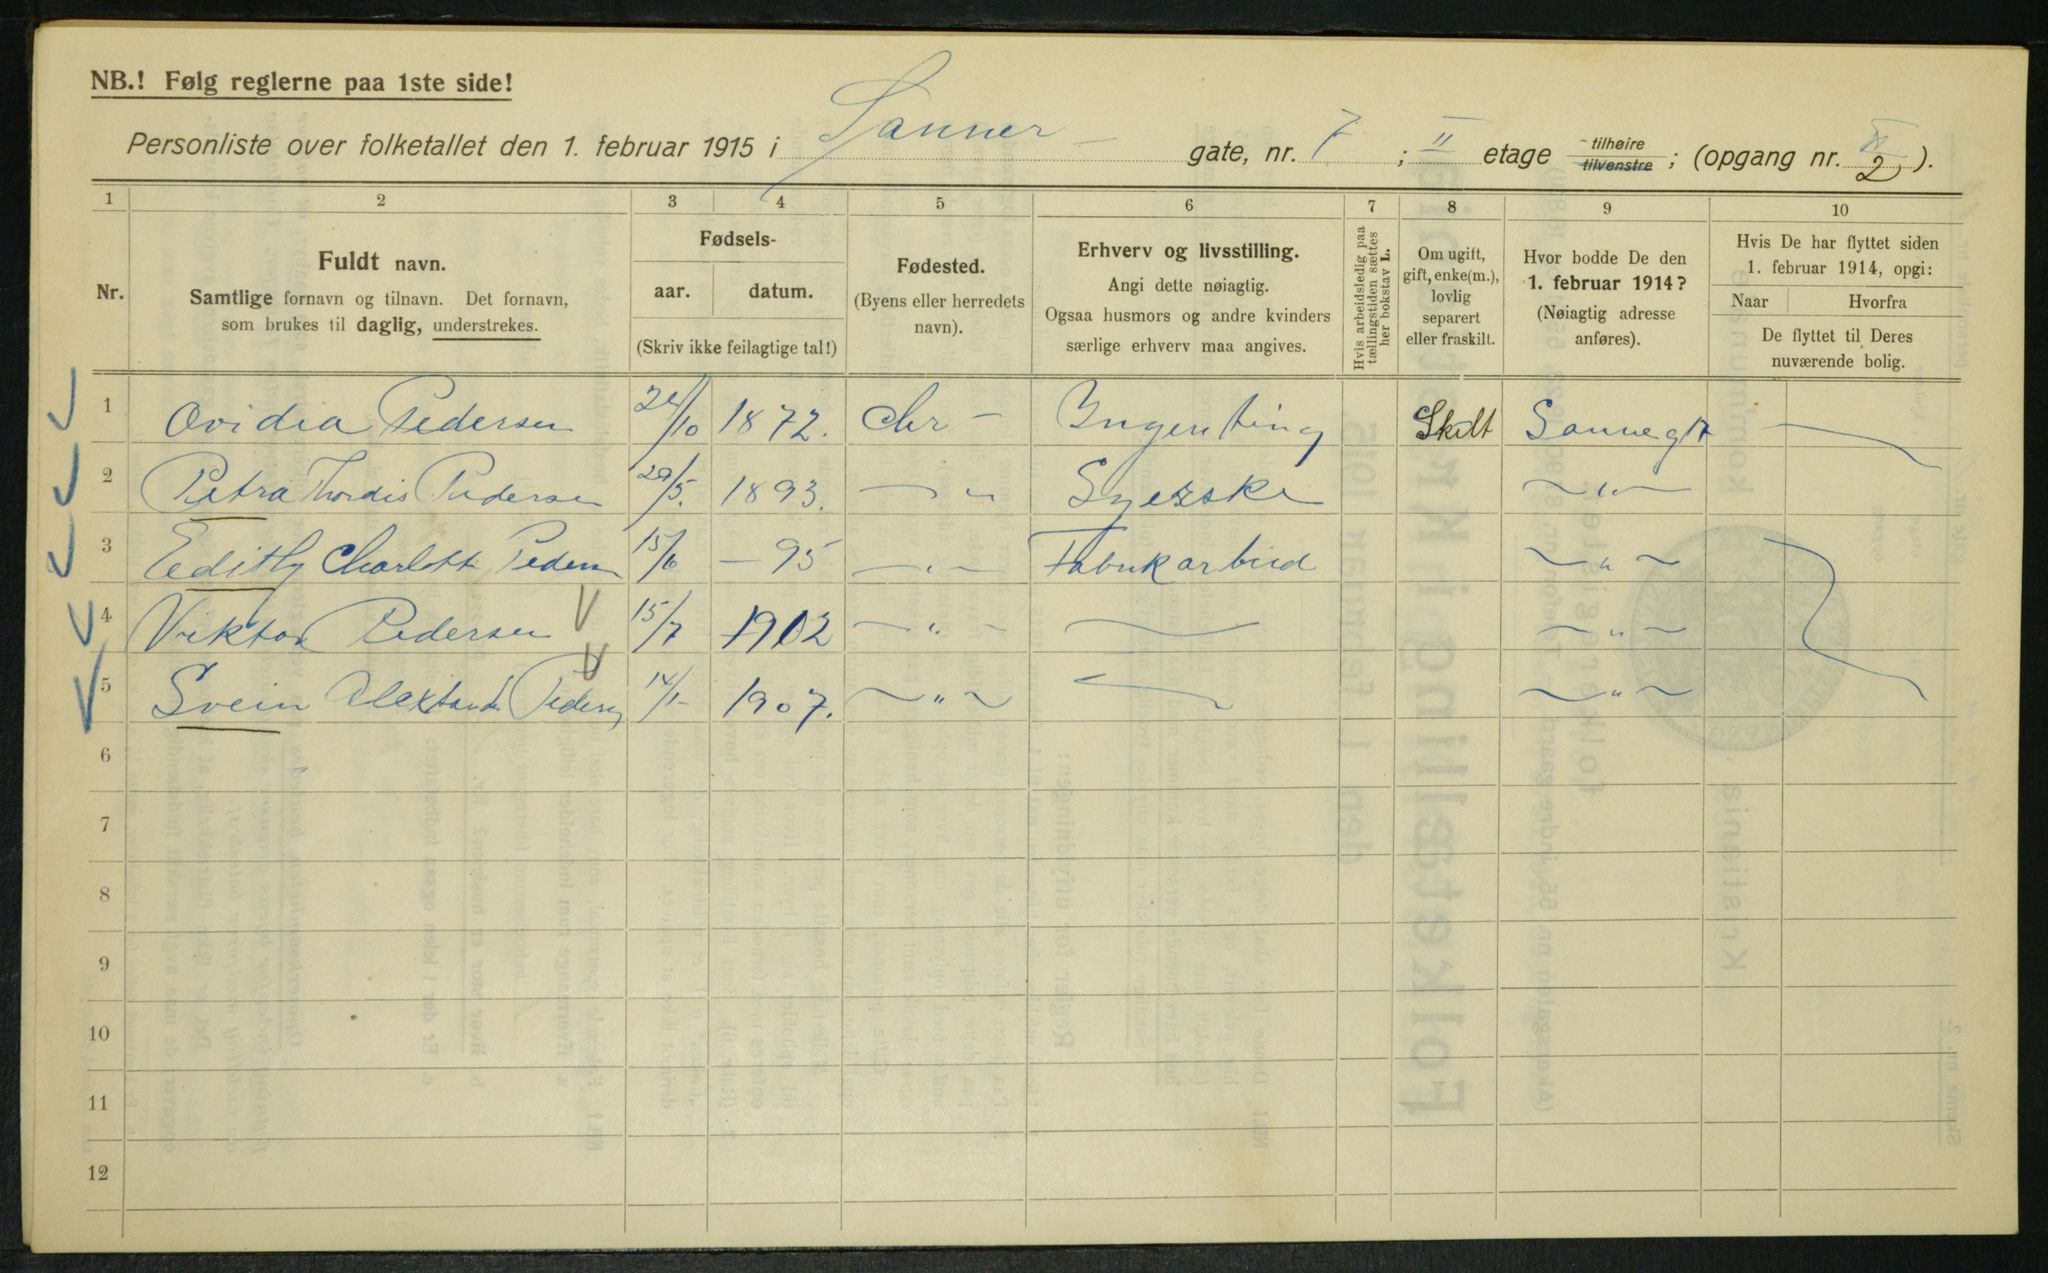 NB.! Følg reglerne paa 1ste side!
Personliste over folketallet den 1. februar 1915 i Sanner- gate, nr. 7 ; II etage tilhøire tilvenstre ; (opgang nr. 2 ).
1 2 3 4 5 6 7 8 9 10
Nr.
Fuldt navn.
Samtlige fornavn og tilnavn. Det fornavn,
som brukes til daglig, understrekes.
Fødsels-
aar. datum.
(Skriv ikke feilagtige tal!)
Fødested.
(Byens eller herredets
navn).
Erhverv og livsstilling.
Angi dette nøiagtig.
Ogsaa husmors og andre kvinders
særlige erhverv maa angives.
Hvis arbeidsledig paa
tællingstiden sættes
her bokstav L.
Om ugift,
gift, enke(m.),
lovlig
separert
eller fraskilt.
Hvor bodde De den
1. februar 1914?
(Nøiagtig adresse
anføres).
Hvis De har flyttet siden
1. februar 1914, opgi:
Naar Hvorfra
De flyttet til Deres
nuværende bolig.
1 Ovidia Pedersen 24/10 1872. Chr - Ingenting Skilt Sanneg 7 —
2 Petra Thordis Pedersen 29/5. 1893. — " Syerske — " —
3 Edith Charlott Pedersen 15/6 — 95 — " — Fabrikarbeid — " —
4 Viktor Pedersen 15/7 1902 — " — — — " —
5 Svein Alexsand Pedersen 14/1 1907. — " — — — " —
6
7
8
9
10
11
12